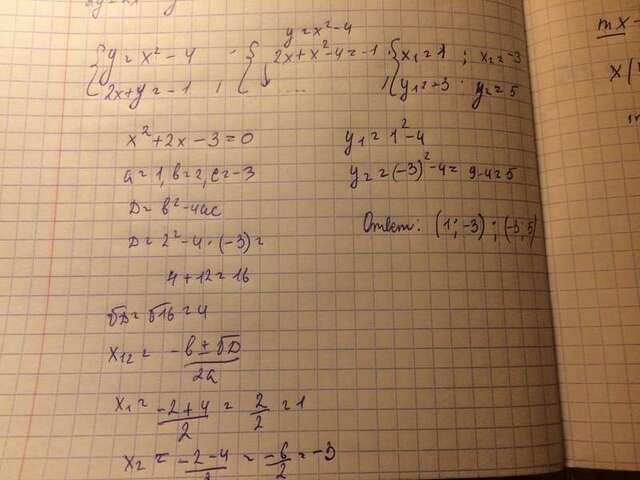 { y = x² - 4 ; { y = x² - 4
2x + y = -1 , { 2x + x² - 4 = -1 ; { x₁ = 1 ; x₂ = -3
{ ... y₁ = -3 ; y₂ = 5
x² + 2x - 3 = 0
a = 1, b = 2, c = -3
D = b² - 4ac
D = 2² - 4 · (-3) =
4 + 12 = 16
√D = √16 = 4
x₁,₂ = -b ± √D / 2a
x₁ = -2 + 4 / 2 = 2 / 2 = 1
x₂ = -2 - 4 / 2 = -6 / 2 = -3
y₁ = 1² - 4
y₂ = (-3)² - 4 = 9 - 4 = 5
Ответ: (1; -3); (-3; 5)
mx
x